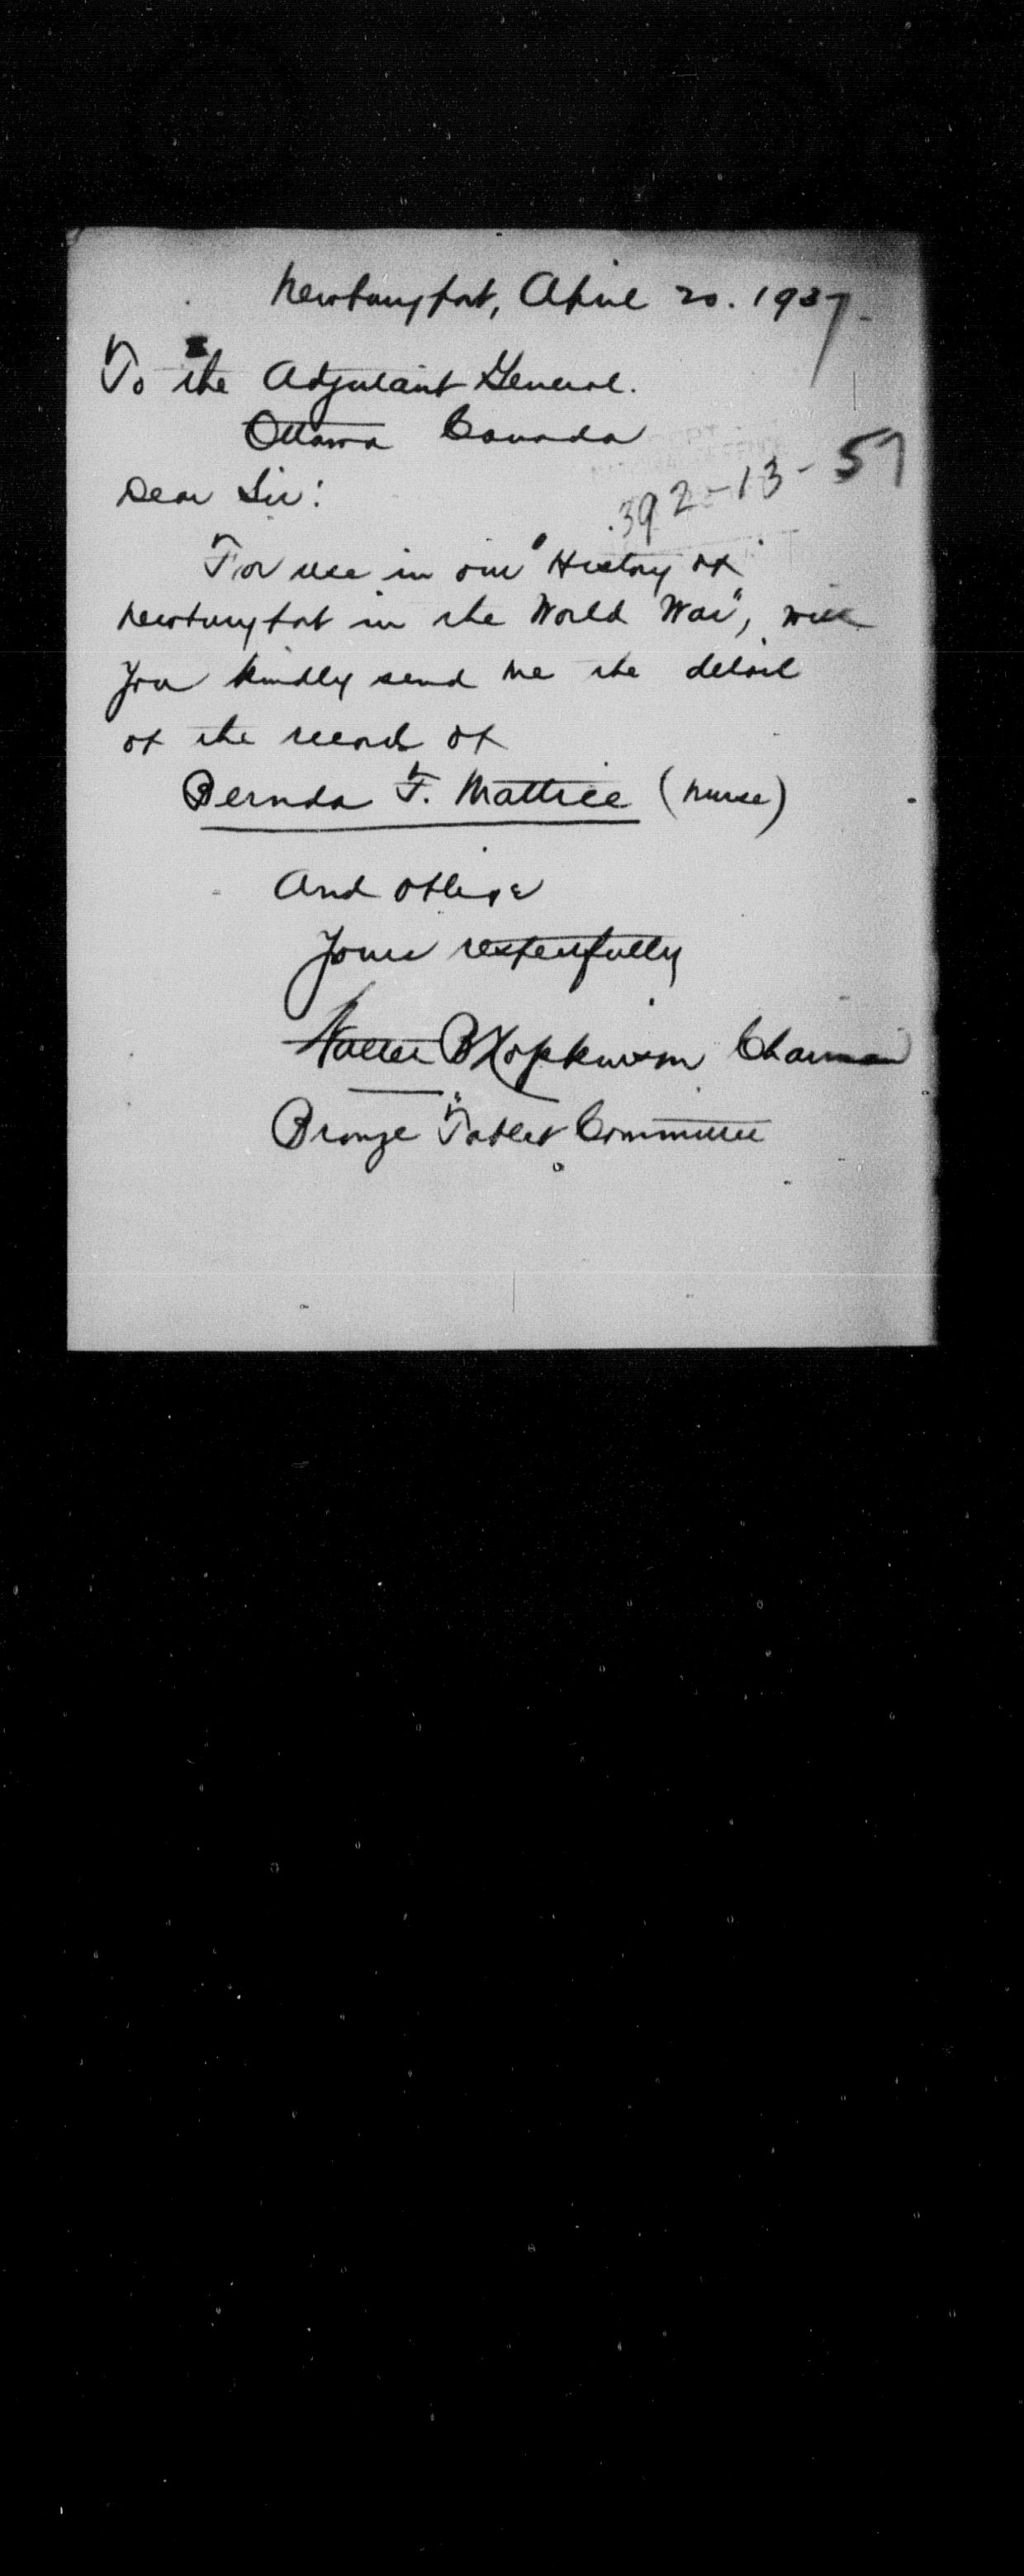 Newburyport, April 20. 1937.
To the Adjutant General.
Ottawa Canada
392-13-57
Dear Sir:
For use in our "History of
Newburyport in the World War", will
you kindly send me the detail
of the record of
Bernda F. Mattice (nurse)
And oblige
Yours respectfully
Walter B Hopkinson Chairman
Bronze Tablet Committee